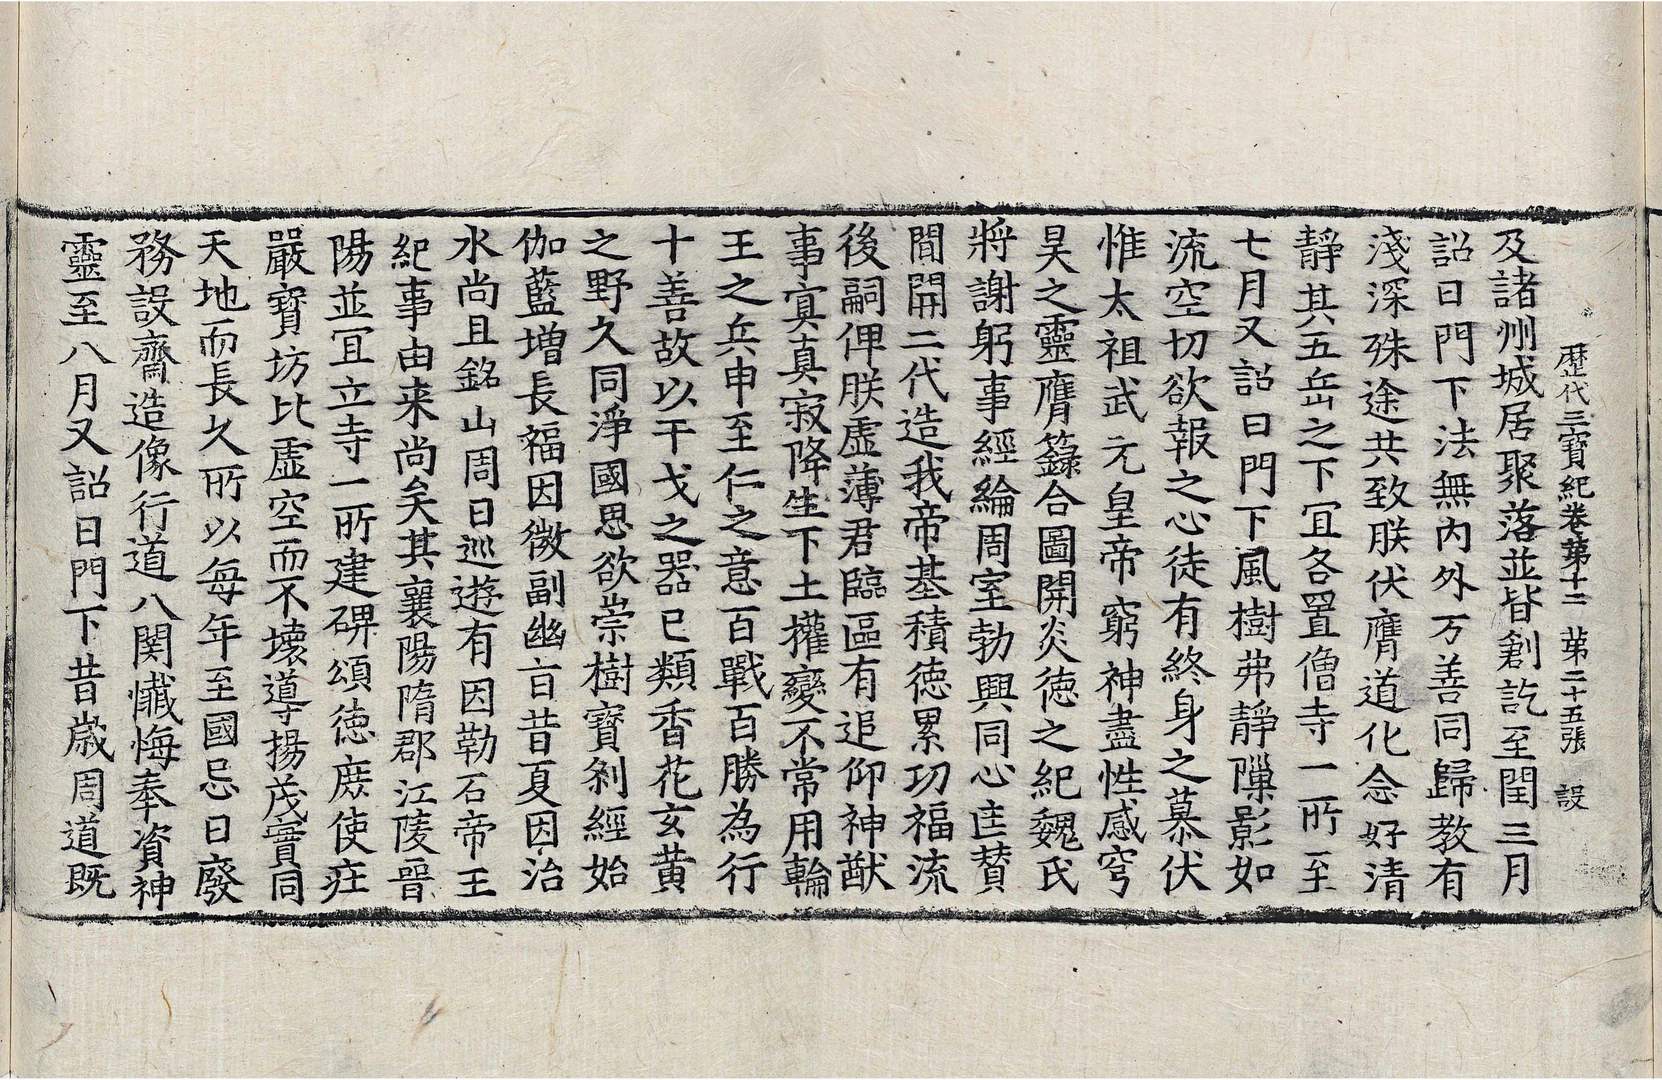 歷代三寶紀卷第十二 第二十五張 設
及諸州城居聚落並皆創訖至閏三月
詔曰門下法無內外万善同歸教有
淺深殊途共致朕伏膺道化念好清
靜其五岳之下冝各置僧寺一所至
七月又詔曰門下風樹弗靜隟影如
流空切欲報之心徒有終身之慕伏
惟太祖武元皇帝窮神盡性感穹
昊之靈膺籙合圖開炎德之紀魏氏
將謝躬事經綸周室勃興同心匡贊
間開二代造我帝基積德累功福流
後嗣俾朕虛薄君臨區有追仰神猷
事冥真寂降生下土權變不常用輪
王之兵申至仁之意百戰百勝為行
十善故以干戈之器已類香花玄黄
之野久同淨國思欲崇樹寶剎經始
伽藍增長福因微副幽旨昔夏因治
水尚且銘山周日巡遊有因勒石帝王
紀事由来尚矣其襄陽隋郡江陵晉
陽並冝立寺一所建碑頌德庶使莊
嚴寶坊比虛空而不壞導揚茂實同
天地而長久所以每年至國忌日廢
務設齋造像行道八關懺悔奉資神
靈至八月又詔曰門下昔歲周道既